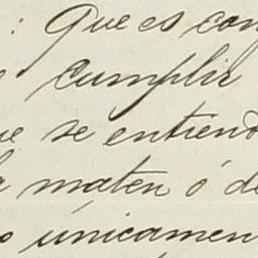 : Que es con
cumplir
ue se entiend
a maten ó de
o únicamen